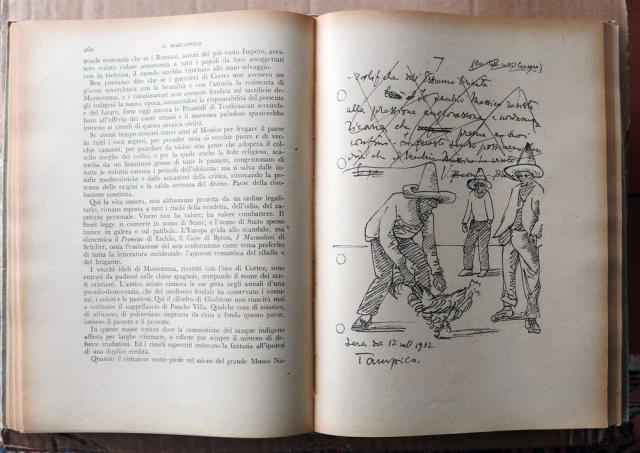 260
IL MARCOPOLO
neade sentenziò che se i Romani, autori del più vasto Impero, aves-
sero voluto ridare autonomia a tutti i popoli da loro assoggettati
con la violenza, il mondo sarebbe ritornato allo stato selvaggio.
Ben possiamo dire che se i guerrieri di Cortez non avessero un
giorno soverchiata con la brutalità e con l'astuzia la resistenza di
Montezuma, e i colonizzatori non avessero fondata sul sacrificio de-
gli indigeni la nuova epoca, assumendosi la responsabilità del presente
e del futuro, forse oggi ancora le Piramidi di Teotihuacan servireb-
bero all'offerta dei cuori umani e il marasma paludoso spazierebbe
intorno ai cimeli di questa arcaica civiltà.
Se avessi tempo tornerei interi anni al Messico per frugare il paese
in tutti i suoi segreti, per prender nota di vecchie pietre e di vec-
chie canzoni, per guardare da vicino una gente che adopera il col-
tello meglio dei codici, e per la quale anche la fede religiosa, scatu-
rita da un fanatismo grosso di tutte le passioni, congestionato di
tutte le voluttà rasenta i periodi dell'idolatria: ma si salva dalle in-
sidie moderniste e dalle astrazioni della critica, ritrovando la po-
tenza delle origini e la calda certezza del divino. Paese della rivo-
luzione continua.
Qui la vita umana, non abbastanza protetta da un ordine legali-
tario, rimane esposta a tutti i rischi della vendetta, dell'odio, del ca-
priccio personale. Vivere non ha valore; ha valore combattere. Il
fuori legge si converte in uomo di Stato; e l'uomo di Stato spesso
finisce in galera o sul patibolo. L'Europa grida allo scandalo; ma
dimentica il Prometeo di Eschilo, il Caino di Byron, I Masnadieri di
Schiller, ossia l'esaltazione del non conformismo come tema preferito
di tutta la letteratura occidentale: l'apoteosi romantica del ribelle e
del brigante.
I vecchi idoli di Montezuma, rivestiti con l'oro di Cortez, sono
entrati da padroni nelle chiese spagnole, usurpando il nome dei san-
ti cristiani. L'antico istinto rinnova le sue gesta negli annali d'una
pseudo-democrazia, che del medioevo feudale ha conservato i costu-
mi, i colori e le passioni. Qui il cilindro di Gladstone non riuscirà mai
a sostituire il cappellaccio di Pancho Villa. Qualche cosa di asiatico,
di africano, di polinesiano impronta da cima a fondo questo paese,
imbeve il passato e il presente.
In queste masse umane dove la commistione del sangue indigeno
affiora per larghe stimmate, si riflette pur sempre il mistero di de-
funte tradizioni. Ed i cimeli superstiti inducono la fantasia all'ipotesi
di una duplice eredità.
Quando il visitatore mette piede nel salone del grande Museo Na-
7
alla pressione
che
Tampico.